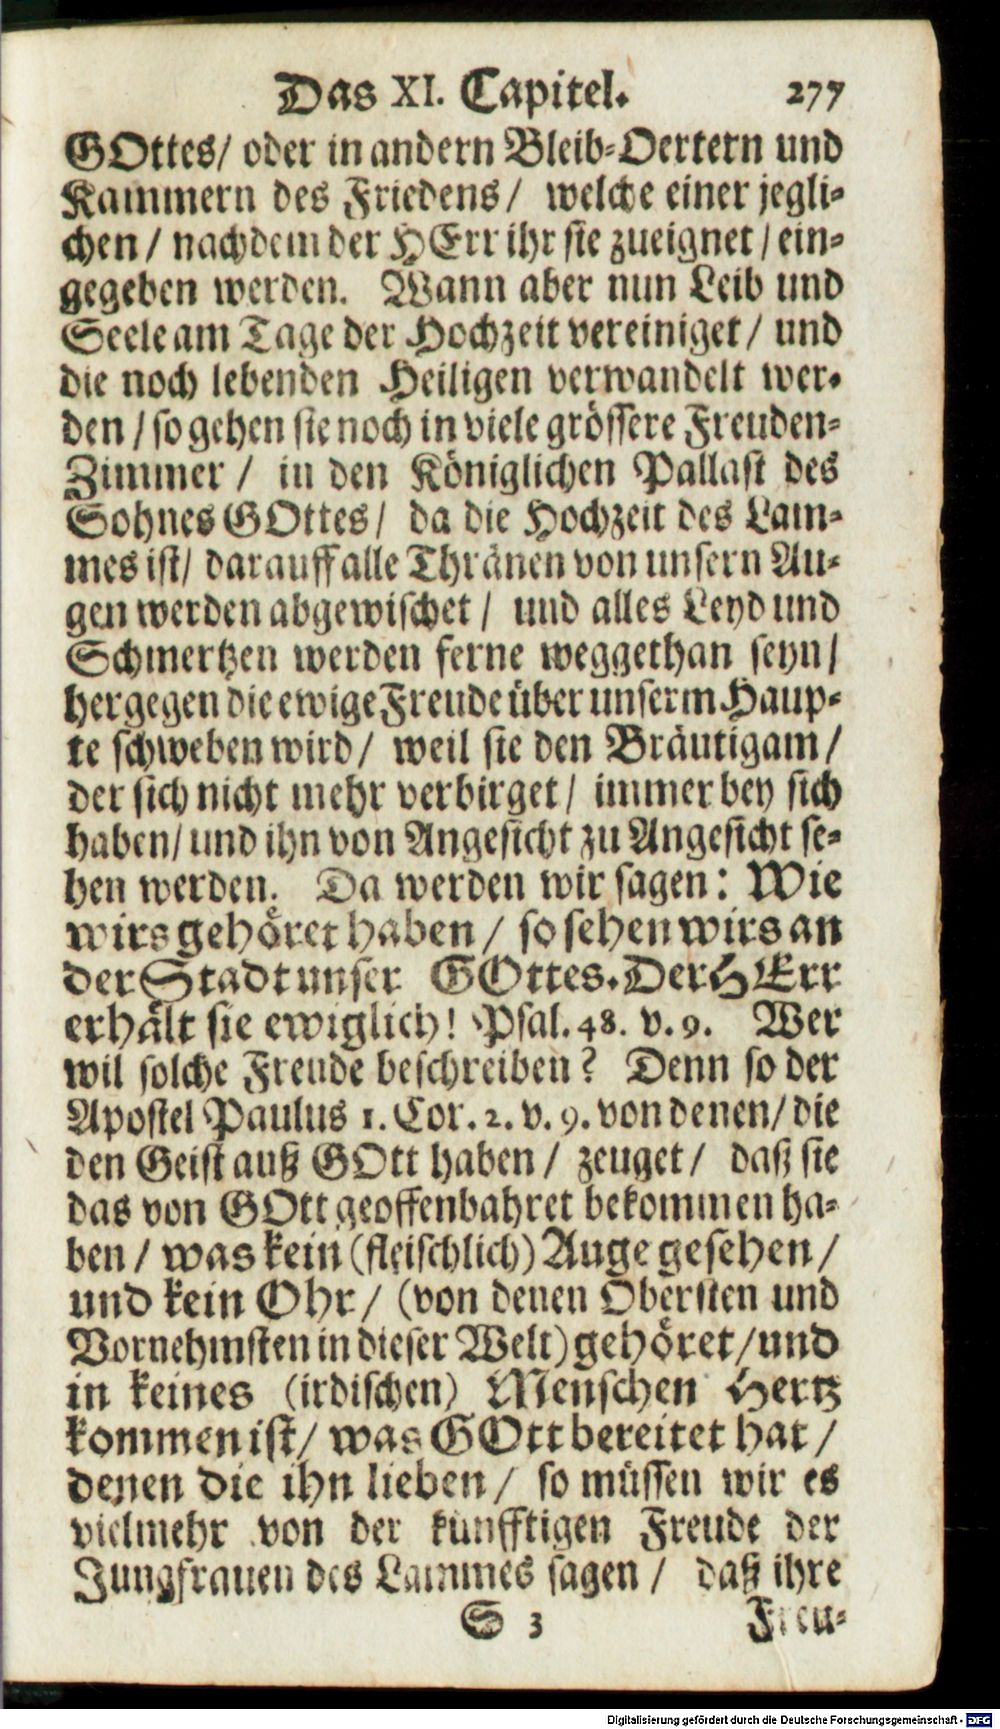 Das XI. Capitel. 277
GOttes/ oder in andern Bleib-Oertern und
Kammern des Friedens/ welche einer jegli-
chen/ nachdem der HErr ihr sie zueignet/ ein-
gegeben werden. Wann aber nun Leib und
Seele am Tage der Hochzeit vereiniget/ und
die noch lebenden Heiligen verwandelt wer-
den/ so gehen sie noch in viele grössere Freuden-
Zimmer/ in den Königlichen Pallast des
Sohnes GOttes/ da die Hochzeit des Lam-
mes ist/ darauff alle Thränen von unsern Au-
gen werden abgewischet/ und alles Leyd und
Schmertzen werden ferne weggethan seyn/
hergegen die ewige Freude über unserm Haup-
te schweben wird/ weil sie den Bräutigam/
der sich nicht mehr verbirget/ immer bey sich
haben/ und ihn von Angesicht zu Angesicht se-
hen werden. Da werden wir sagen: Wie
wirs gehöret haben/ so sehen wirs an
der Stadt unser GOttes. Der HErr
erhält sie ewiglich! Psal. 48. v. 9. Wer
wil solche Freude beschreiben? Denn so der
Apostel Paulus 1. Cor. 2. v. 9. von denen/ die
den Geist auß GOtt haben/ zeuget/ daß sie
das von GOtt geoffenbahret bekommen ha-
ben/ was kein (fleischlich) Auge gesehen/
und kein Ohr/ (von denen Obersten und
Vornehmsten in dieser Welt) gehöret/ und
in keines (irdischen) Menschen Hertz
kommen ist/ was GOtt bereitet hat/
denen die ihn lieben/ so müssen wir es
vielmehr von der künfftigen Freude der
Jungfrauen des Lammes sagen/ daß ihre
S 3 Freu-
Digitalisierung gefördert durch die Deutsche Forschungsgemeinschaft - DFG